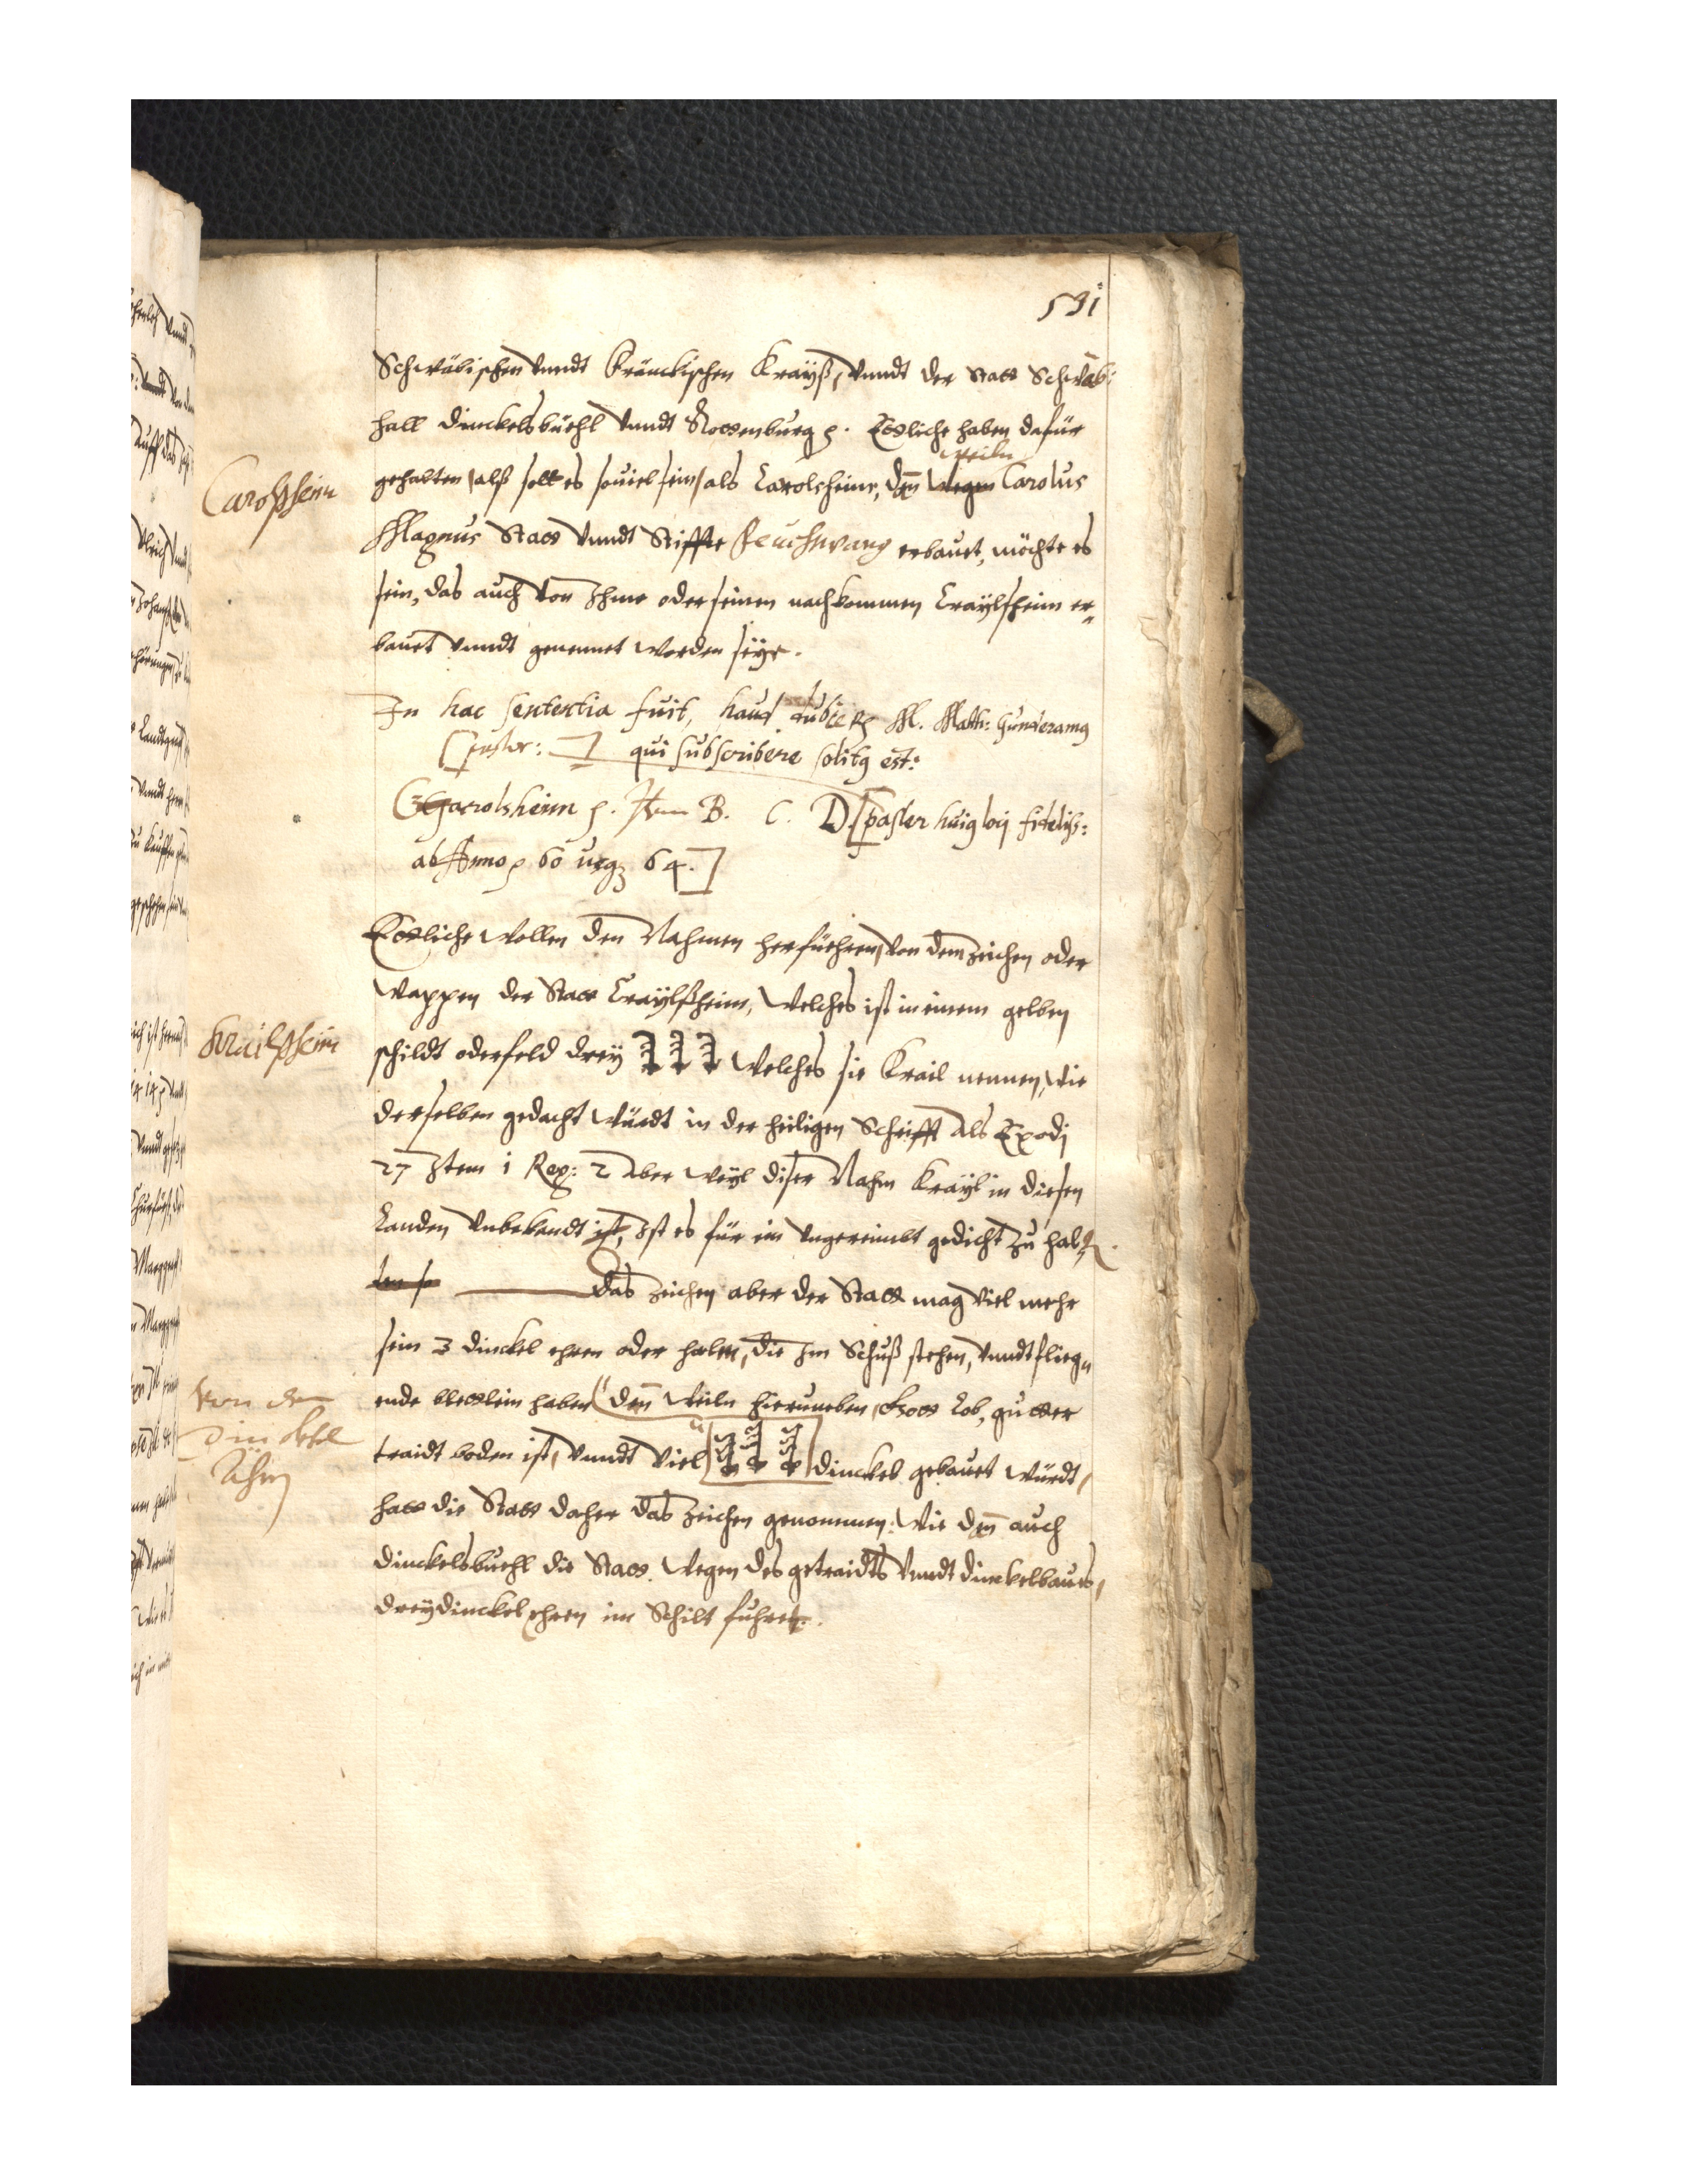 531
Schwäbischen vnndt Fränckischen Krayß, vnndt der Statt Schwäb:
hall Dinckelsbüehl vnndt Rottenburg p. Ettliche haben dafür
weiln
Carolßheim
gehalten, alß sollt es souiel sein, als Carolsheim, den wegen Carolus
Magnus Statt vnndt Stiffte Feuchwang erbauet, möchte es
sein, das auch von Ihme oder seinen nachkommen Craÿlsheim er-
bauet vnndt genennet worden seÿe.
In hac sententia fuit, haud dubie M. Matth: Gunderamg
[pastor:] qui subscribere solitg est:
Carolsheim p. B. C. D. [paster huig loci fidelis:
ab Anno p 60 usqz 64.]
Ettliche wollen den Nahmen herfüehren, von dem zeichen oder
Wappen der Statt Craÿlßheim, Welches ist in einem gelben
Krailßheim
schildt oder feld dreÿ Welches sie Krail nennen, wie
derselben gedacht würdt in der heiligen Schrifft als Exodj
27 Item 1 Reg: 2 Aber weÿl diser Nahm Kraÿl in diesen
Landen vnbekandt ist, Ist es für ein vngereimbt gedicht zu halten.
Das zeichen aber der Statt mag viel mehr
sein 3 dinckel ehren oder halm, die Im Schuß stehen, vnndt flieg-
von den
Dinckel
Ähren
ende blettlein haben den weiln hierumben, Gott Lob, gutter
traidt boden ist, vnndt viel dinckel gebauet würdt,
hatt die Statt daher das zeichen genommen: Wie den auch
Dinckelsbüehl die Statt. Wegen des getraidts vnndt dinckelbaues,
dreÿ dinckel ehren im Schilt fuhret.